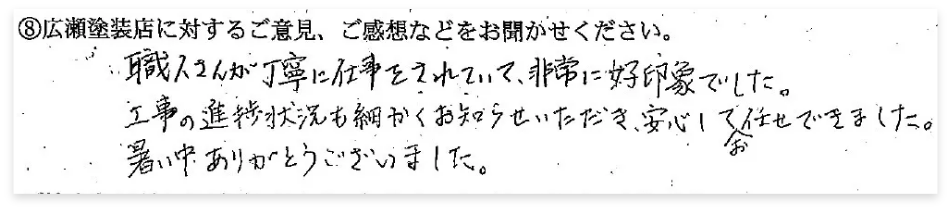 ⑧広瀬塗装店に対するご意見、ご感想などをお聞かせください。
職人さんが丁寧に仕事をされていて、非常に好印象でした。
工事の進捗状況も細かくお知らせいただき、安心してお任せできました。
暑い中ありがとうございました。